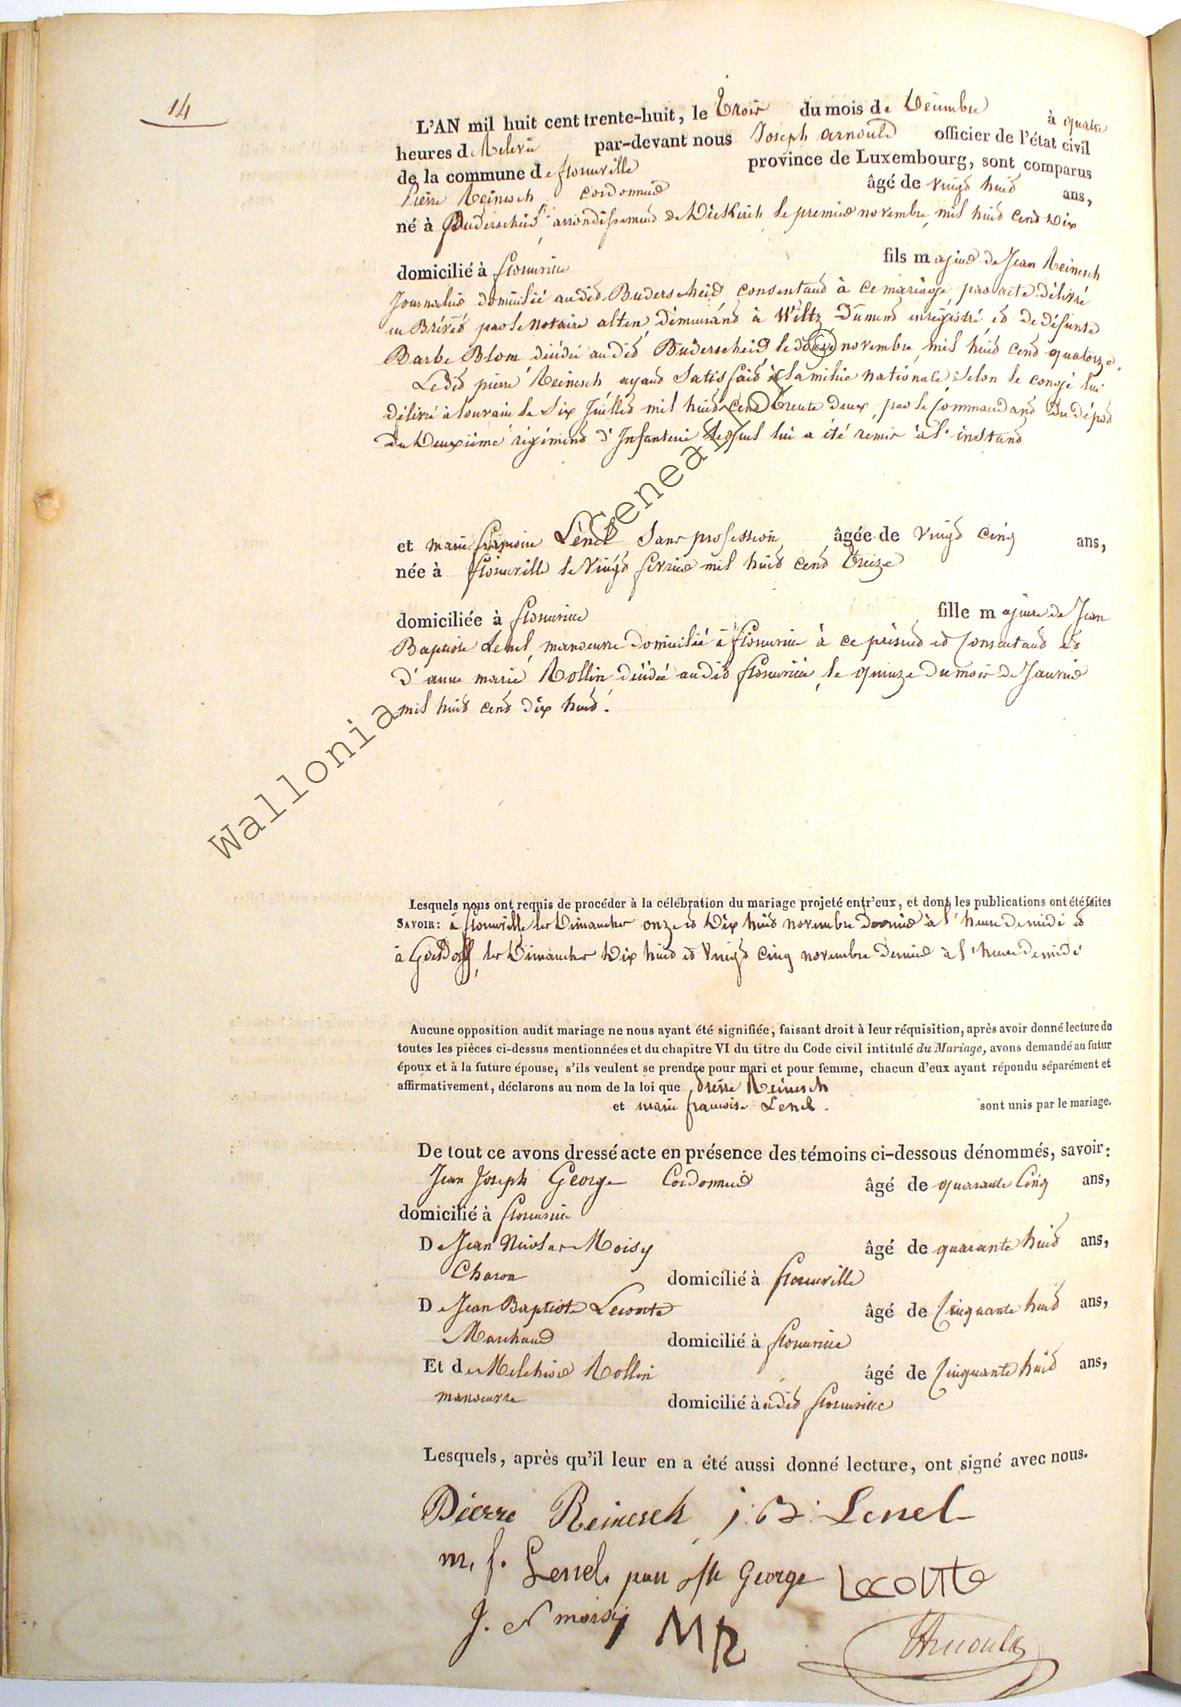 14
L'AN mil huit cent trente-huit, le trois du mois de Décembre à quatre
heures de relevé par-devant nous Joseph Arnould officier de l'état civil
de la commune de florenville province de Luxembourg, sont comparus
Pierre Reinesch cordonnier âgé de vingt huit ans,
né à Buderscheid, arrondissement de Diekirch le premier novembre, mil huit cent dix
domicilié à florenville fils majeur de Jean Reinesch
Journalier domicilié audit Buderscheid consentant à ce mariage par acte délivré
en Brévet par le notaire alten, démeurant à Wiltz Dument enrégistré et de défunte
Barbe Blom décédée audit Buderscheid le novembre mil huit cent quatorze.
Ledit pierre Reinesch ayant satisfait à la milice nationale selon le congé lui
délivré à louvain le Six Juillet mil huit cent trente deux, par le Commandant du dépot
du Deuxième régiment d'Infanterie lequel lui a été remis à l'instant
et marie françoise Lenel Sans profession âgée de vingt cinq ans,
née à florenville le vingt fevrier mil huit cent treize
domiciliée à florenville fille majeure de Jean
Baptiste Lenel, manoeuvre domicilié à florenville à ce présent et Consentant et
d'anne marie Rollin décédée audit florenville, le quinze du mois de Janvier
mil huit cent dix huit.
Lesquels nous ont requis de procéder à la célébration du mariage projeté entr'eux, et dont les publications ont été faites
SAVOIR: à florenville les Dimanches onze et Dix huit novembre dernier à l'heure de midi et
à Goesdorff, les Dimanches Dix huit et Vingt cinq novembre dernier à l'heure de midi
Aucune opposition audit mariage ne nous ayant été signifiée, faisant droit à leur réquisition, après avoir donné lecture de
toutes les pièces ci-dessus mentionnées et du chapitre VI du titre du Code civil intitulé du Mariage, avons demandé au futur
époux et à la future épouse, s'ils veulent se prendre pour mari et pour femme, chacun d'eux ayant répondu séparément et
affirmativement, déclarons au nom de la loi que pierre Reinesch
et marie françoise Lenel. sont unis par le mariage.
De tout ce avons dressé acte en présence des témoins ci-dessous dénommés, savoir:
Jean Joseph George Cordonnier âgé de quarante Cinq ans,
domicilié à florenville
De Jean Nicolas Moisy âgé de quarante huit ans,
Charon domicilié à florenville
De Jean Baptiste Leconte âgé de Cinquante huit ans,
Marchand domicilié à florenville
Et de Melchior Rollin âgé de Cinquante huit ans,
manoeuvre domicilié audit florenville
Lesquels, après qu'il leur en a été aussi donné lecture, ont signé avec nous.
Pierre Reinesch j: B: Lenel
m. f. Lenel George Leconte
J. N moisy MR Arnould
Wallonia Geneanor